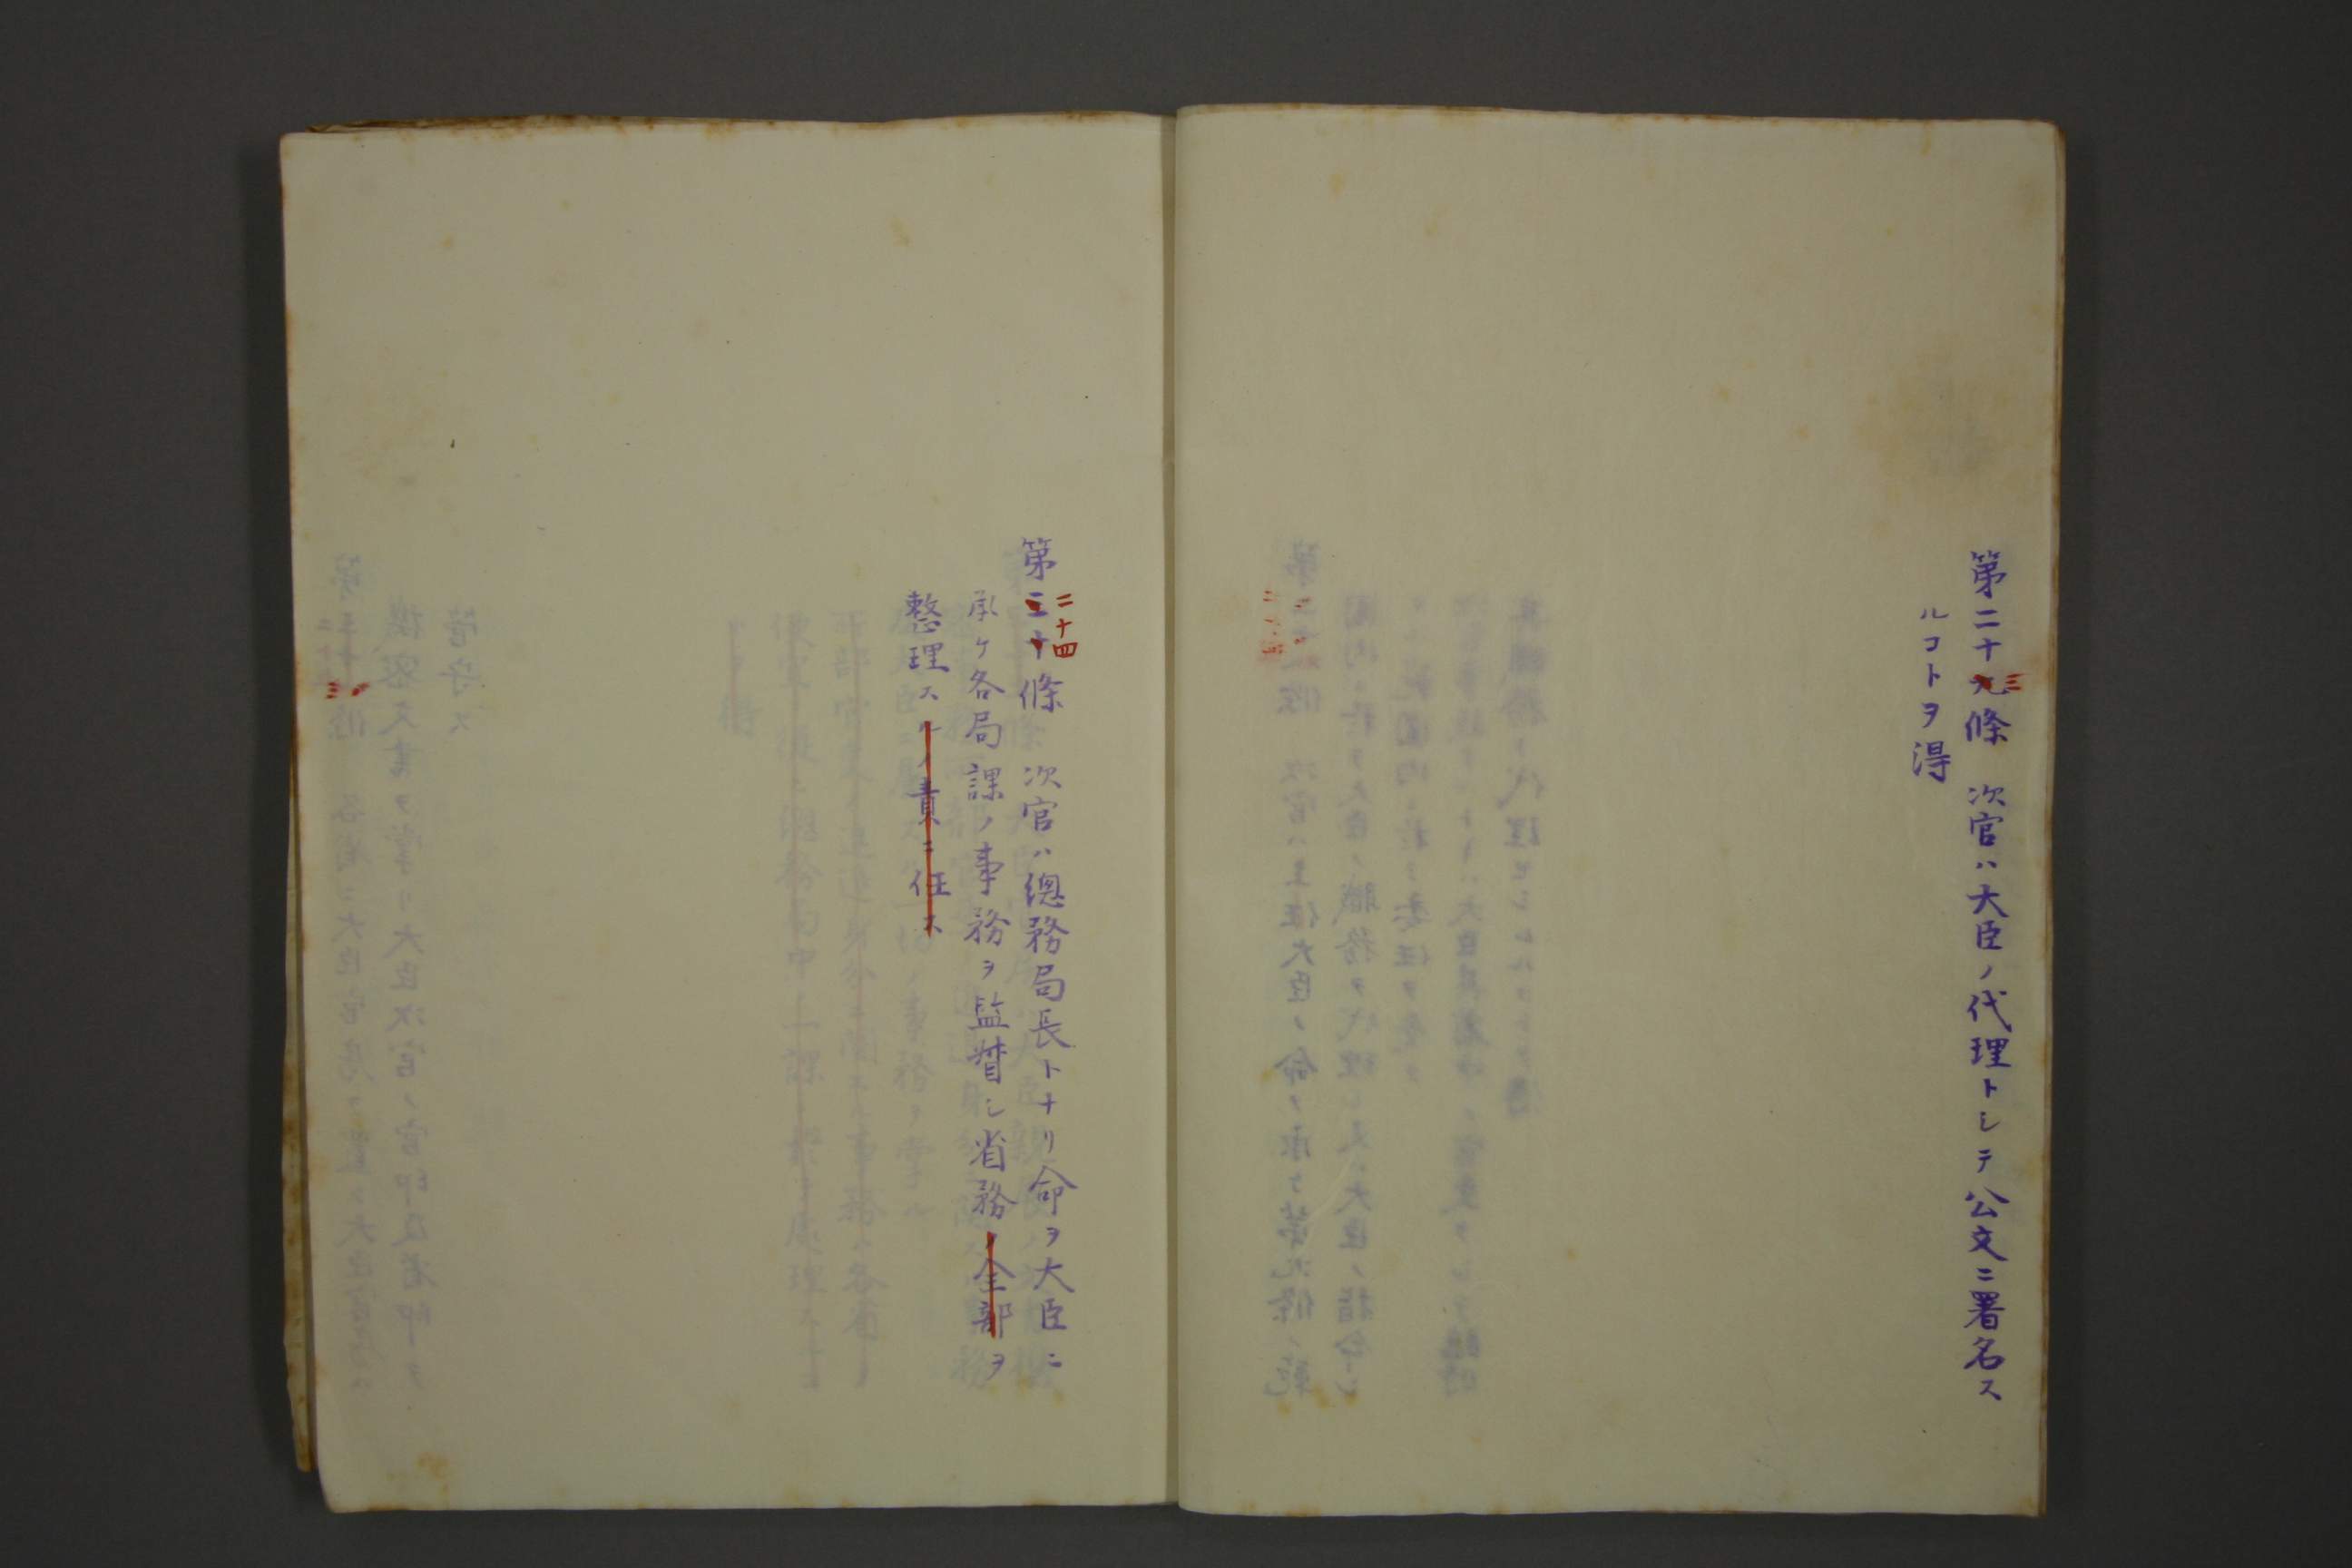 第二十九條　次官ハ大臣ノ代理トシテ公文ニ署名ス
三
ルコトヲ得
第三十條　次官ハ總務局長トナリ命ヲ大臣ニ
二十四
承ケ各局課ノ事務ヲ監督シ省務ノ全部ヲ
整理スルノ責ニ任ス